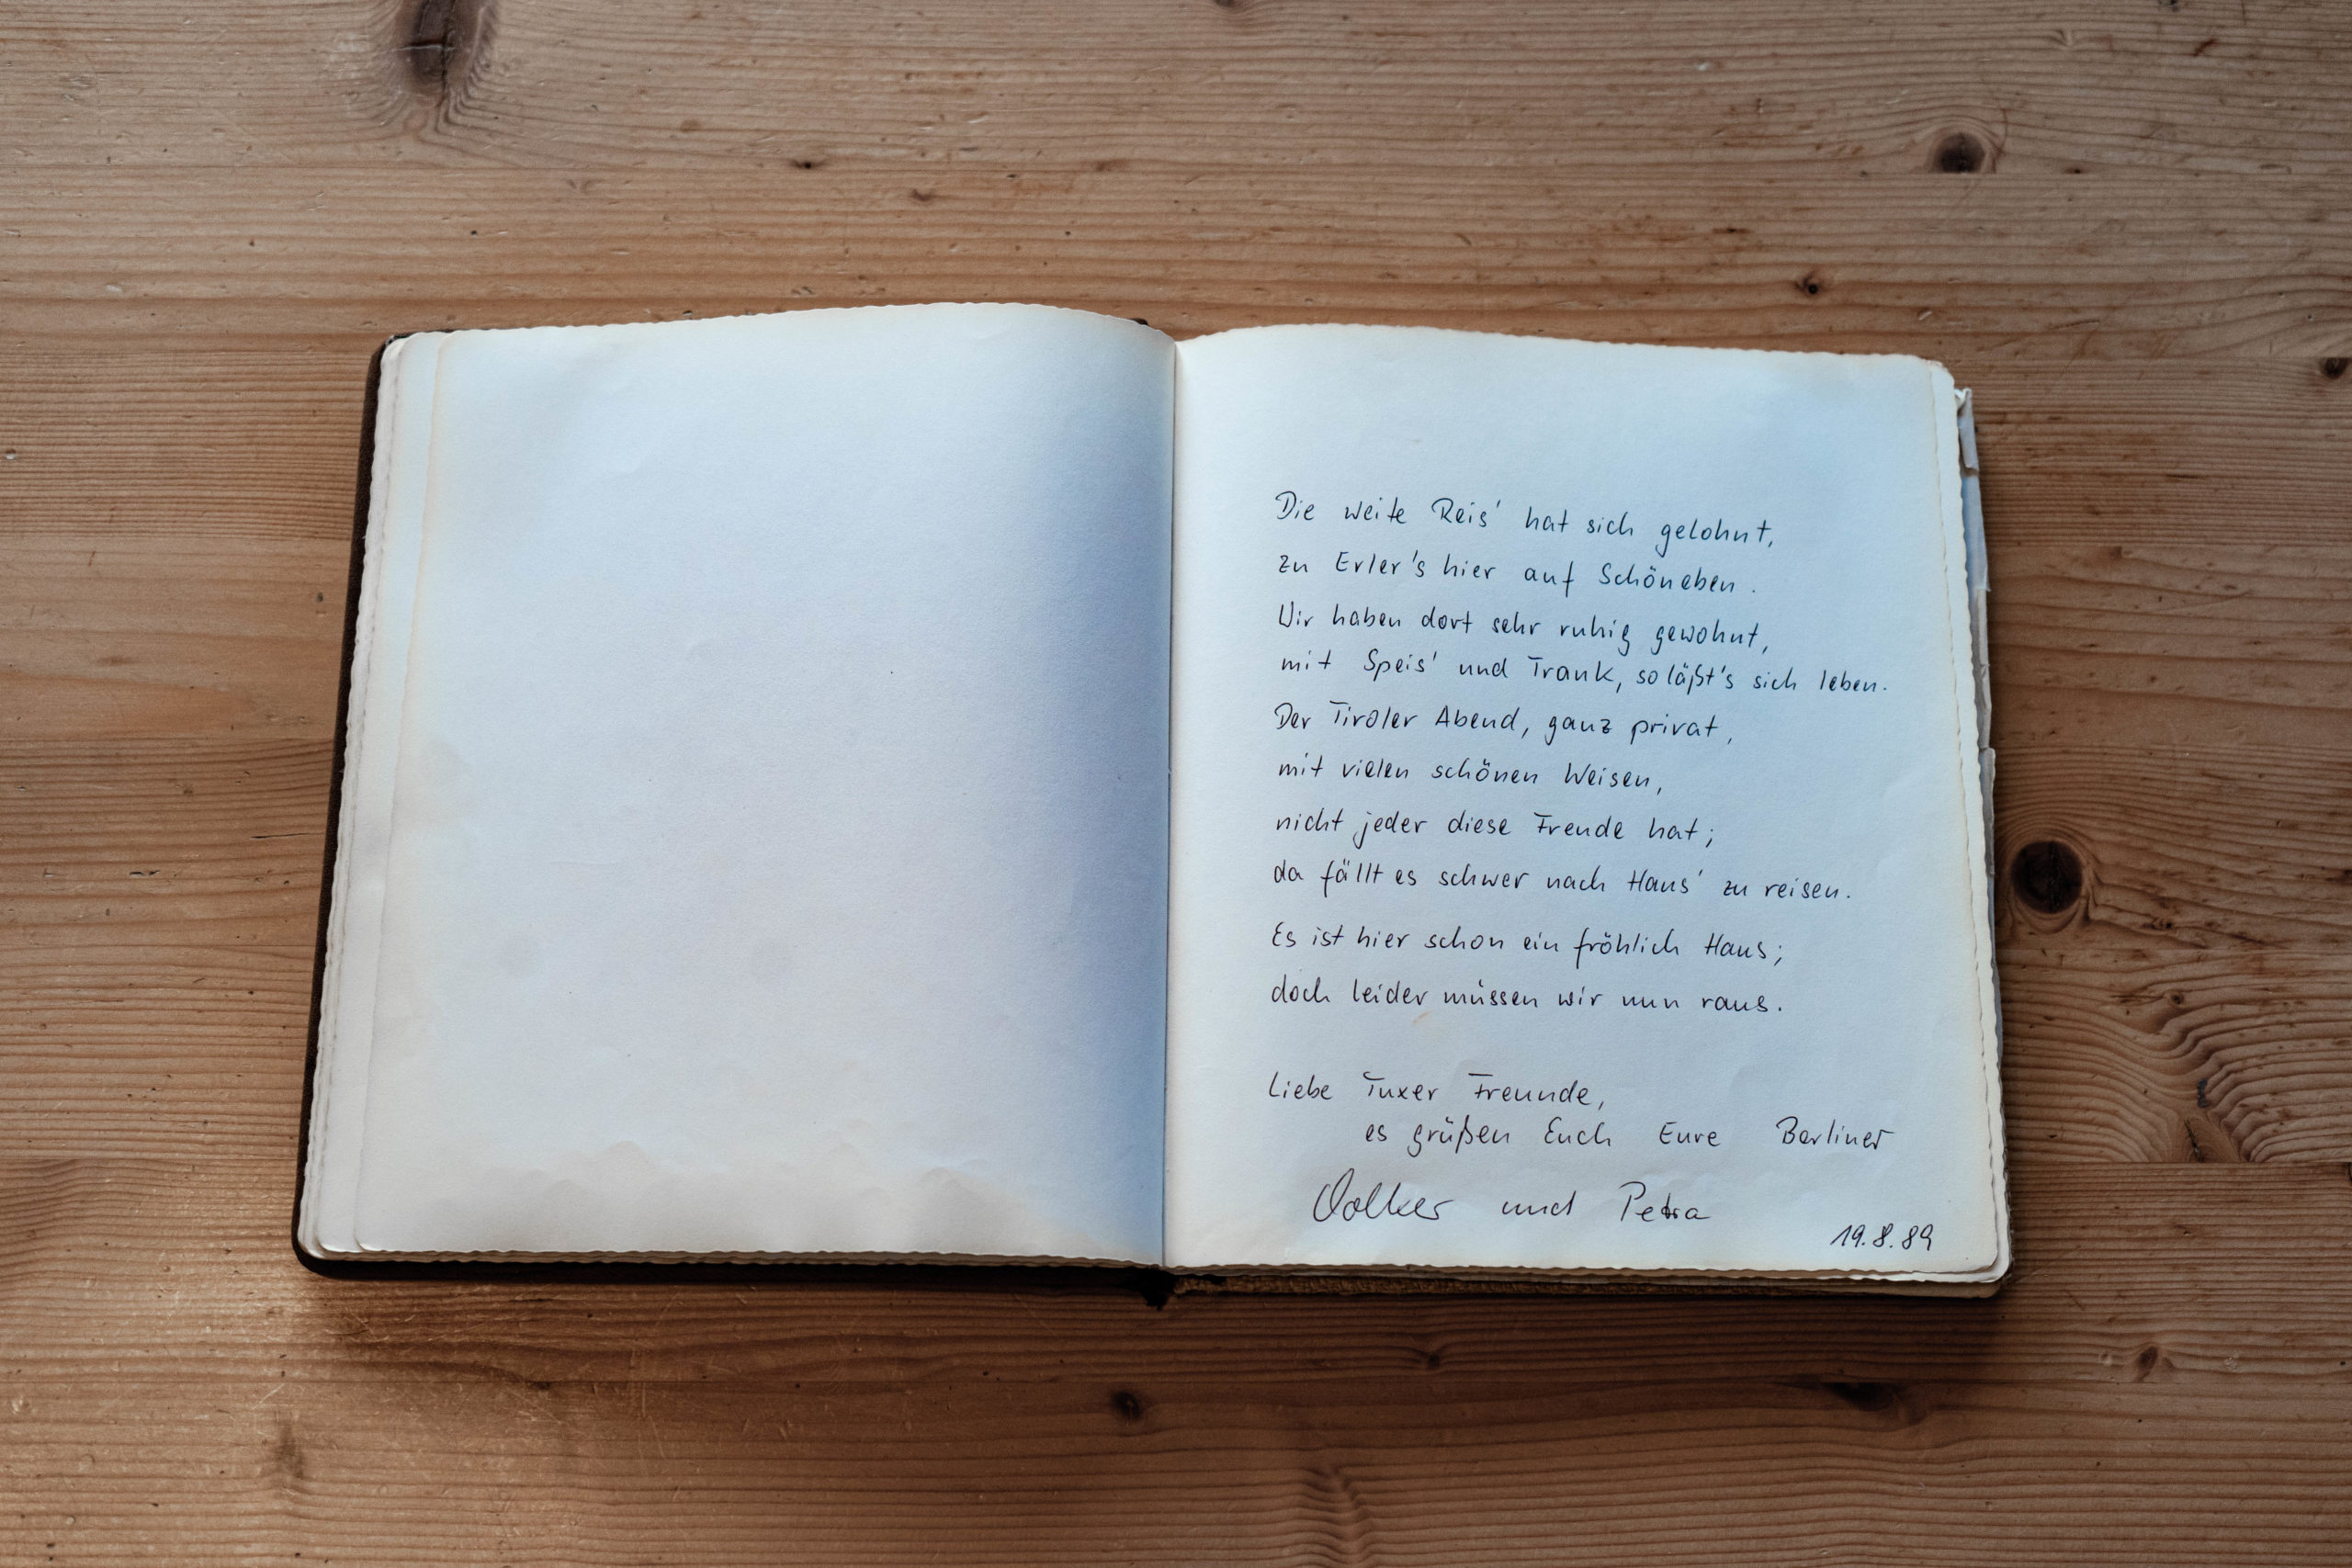 Die weite Reis' hat sich gelohnt,
zu Erler's hier auf Schöneben.
Wir haben dort sehr ruhig gewohnt,
mit Speis' und Trank, so läßt's sich leben.
Der Tiroler Abend, ganz privat,
mit vielen schönen Weisen,
nicht jeder diese Freude hat;
da fällt es schwer nach Haus' zu reisen.
Es ist hier schon ein fröhlich Haus;
doch leider müssen wir nun raus.
Liebe Tuxer Freunde,
es grüßen Euch Eure Berliner
Volker und Petra
19.8.89